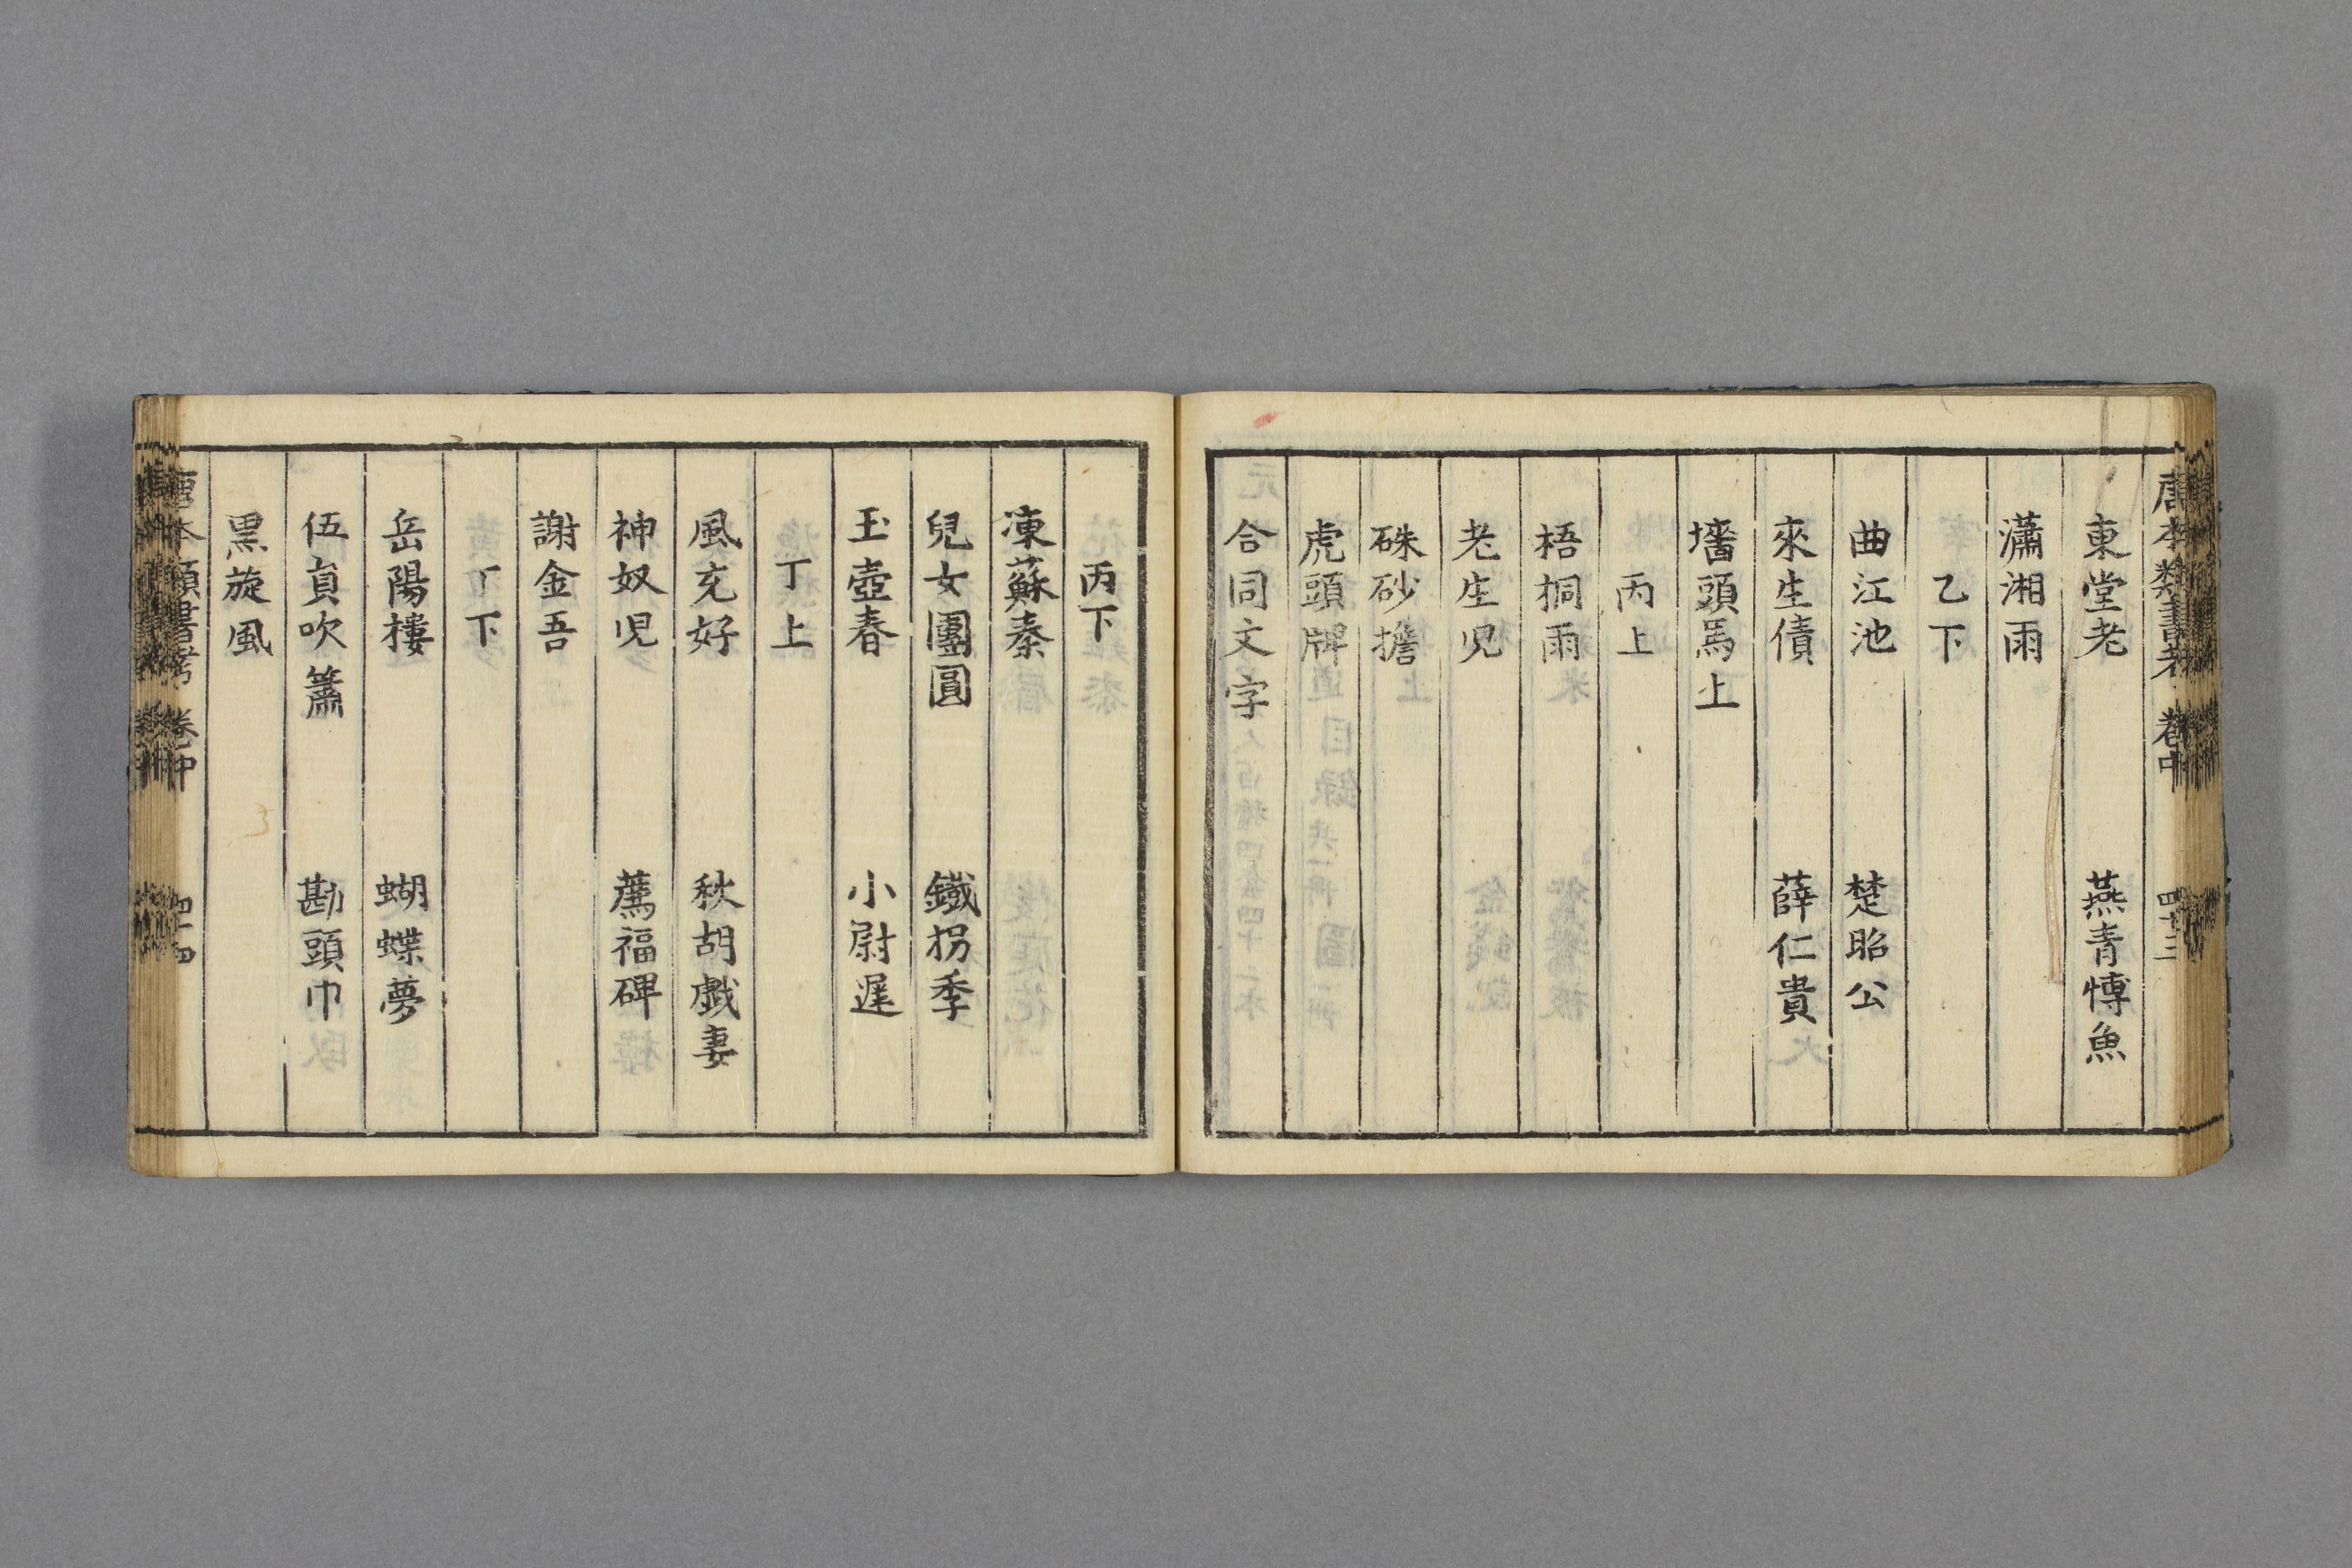 唐本類書考 卷中 四十三
東堂老 燕青愽魚
瀟湘雨
乙下
曲江池 楚昭公
來生債 薛仁貴
墻頭馬上
丙上
梧桐雨
老生児
硃砂擔
虎頭牌
合同文字
丙下
凍蘇秦
兒女團圓 鐵拐季
玉壺春 小尉遲
丁上
風充好 秋胡戯妻
神奴児 薦福碑
謝金吾
丁下
岳陽樓 蝴蝶夢
伍貟吹簫 勘頭巾
黒旋風
唐本類書考 卷中 四十四